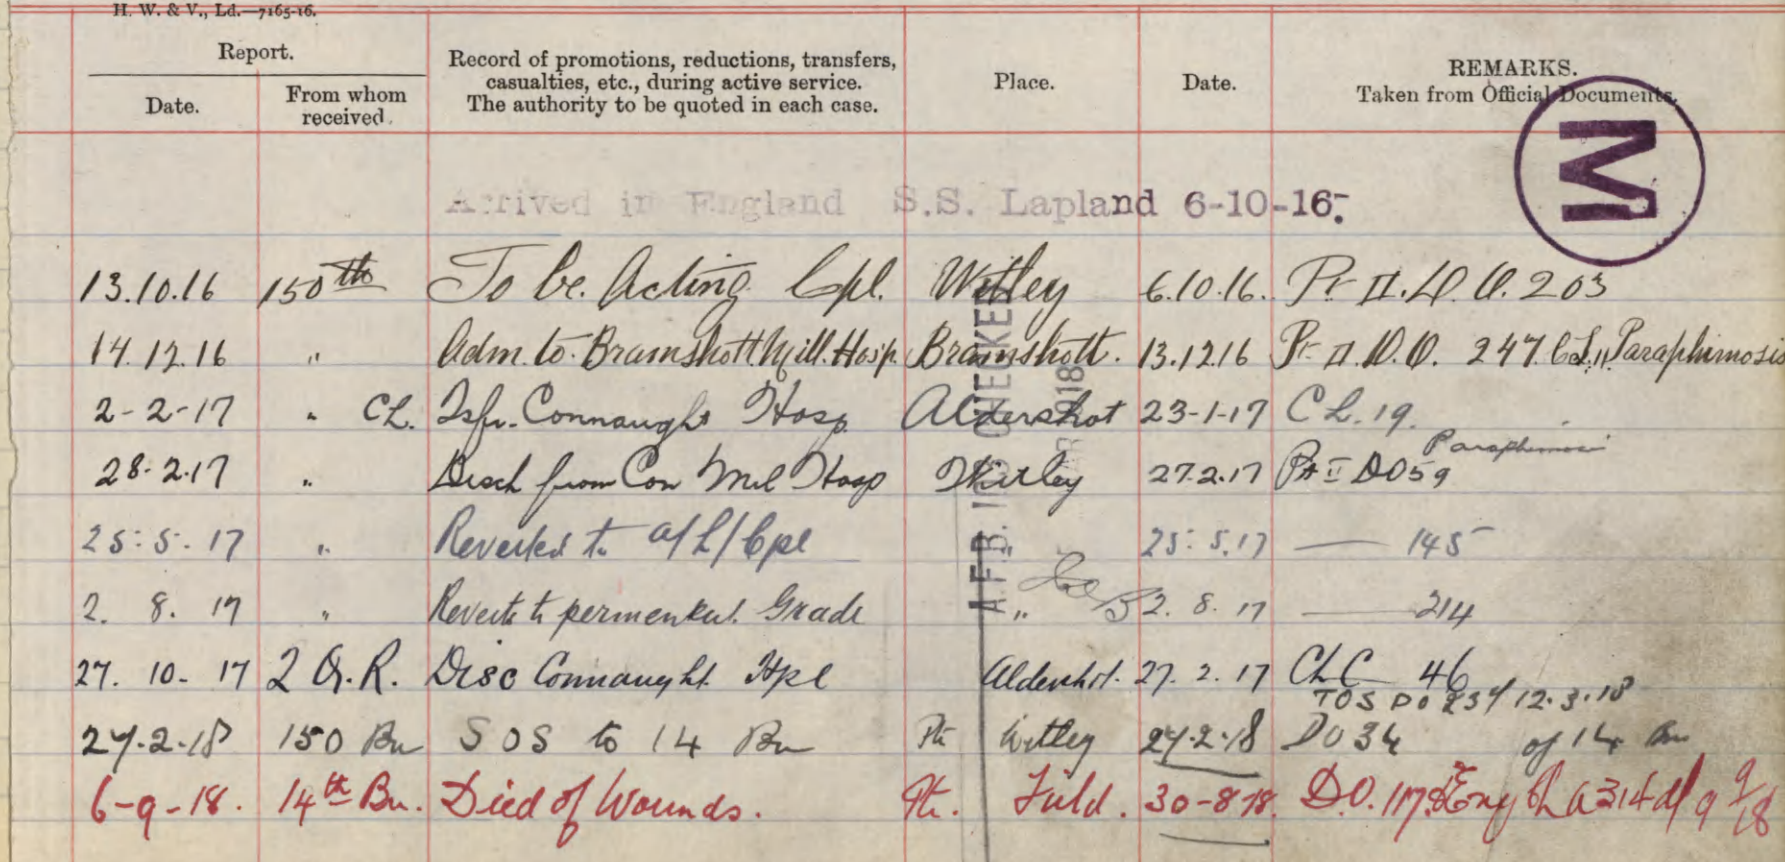 H. W. & V., Ld.—7165-16.
Report.
Date.
From whom
received.
Record of promotions, reductions, transfers,
casualties, etc., during active service.
The authority to be quoted in each case.
Place.
Date.
REMARKS.
Taken from Official Documents.
M
Arrived in England S.S. Lapland 6-10-16.
13.10.16 150th To be Acting Cpl. Witley 6.10.16. Pt II. D. O. 203
14.12.16 " Adm. to Bramshott Mill. Hosp. Bramshott. 13.12.16 Pt II. D. O. 247. Paraphimosis
2-2-17 " CL. Tsfr. Connaught Hosp Aldershot 23-1-17 CL. 19.
Paraphimosis
28-2-17 " Disch from Con Mil Hosp Witley 27.2.17 Pt II DO 59
25.5.17 " Reverted to a/L/Cpl " 25.5.17 — 145
2. 8. 17 " Reverts to permenkut Grade " 2. 8. 17 — 214
27. 10. 17 2 Q.R. Disc Connaught Hpl Aldershot. 27. 2. 17 CLC 46
TOS DO 12.3.18
27.2.18 150 Bn SOS to 14 Bn Pte Witley 27.2.18 DO 34 of 14 Bn
6-9-18. 14th Bn. Died of Wounds. Pte. Field. 30-8-18. D.O. 117 A314 d/ 9/9/18
A.F.B. CHECKED